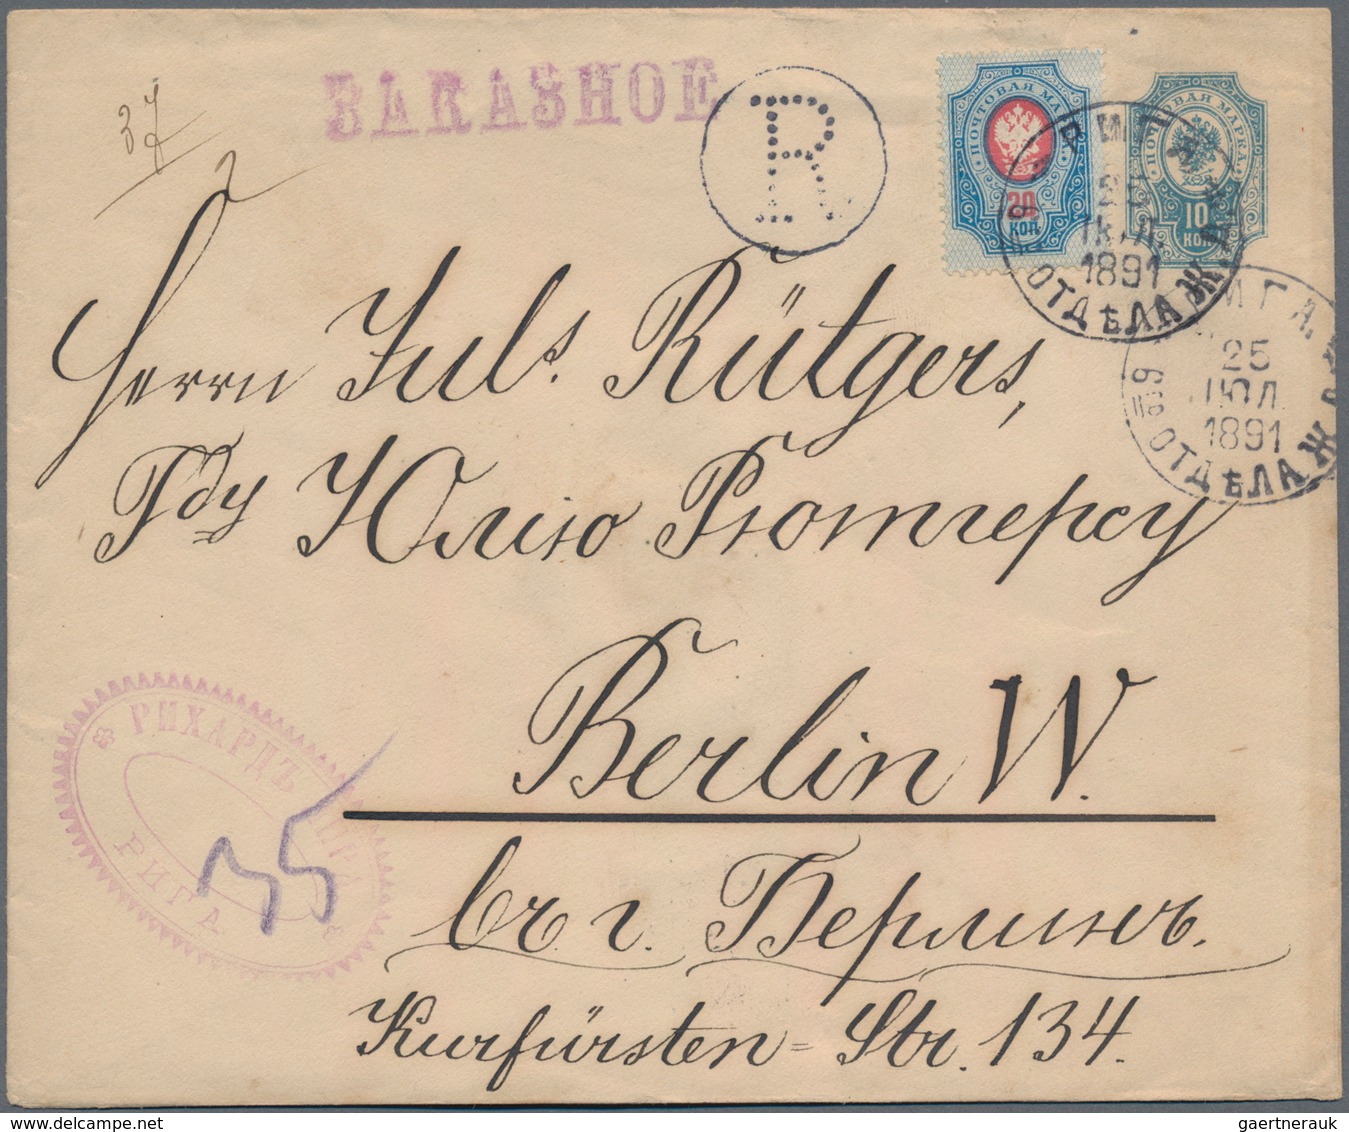 37
ЗАКАЗНОЕ
R
ПОЧТОВАЯ МАРКА
20
КОП
ПОЧТОВАЯ МАРКА
10
КОП
РИГА
25
ІЮЛ.
1891
ОТДѢЛА Ж.Д.
РИГА.
25
ІЮЛ.
1891
ОТДѢЛА Ж.Д.
Herrn Juls. Rütgers,
Гду Юлію Рютгерсу
Berlin W.
въ г. Берлинъ.
Kurfürsten-Str. 134.
РИХАРДЪ
РИГА
35
gaertnerauk
delcampe.net